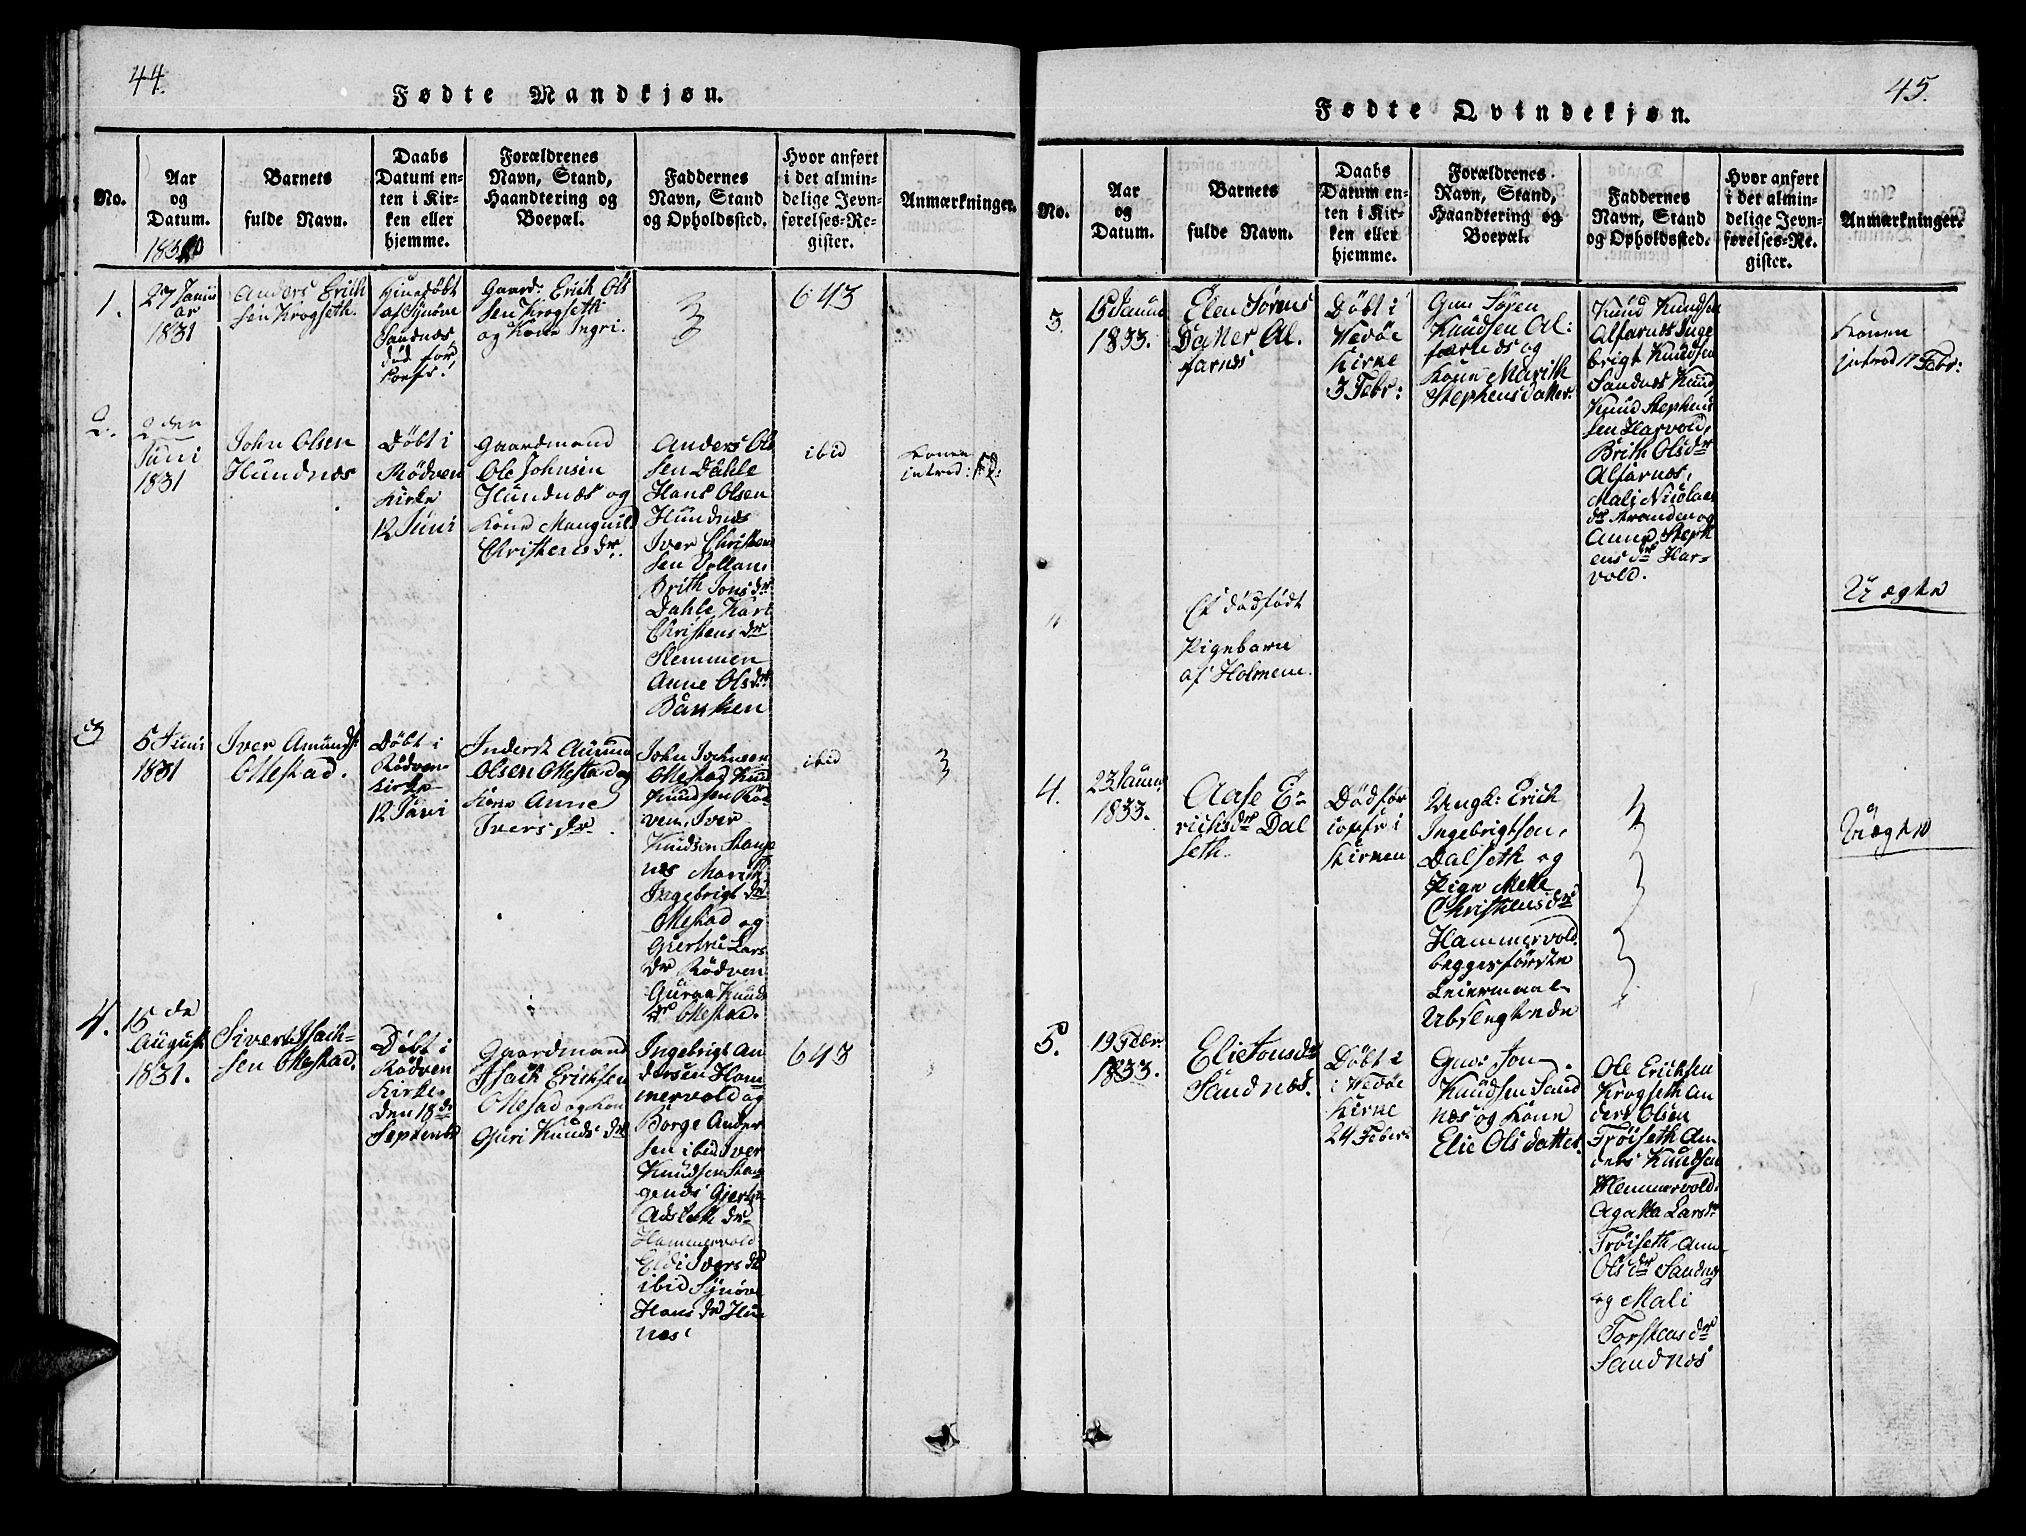 44.
Fødte Mandkjøn.
No.
Aar
og
Datum.
1831
Barnets
fulde Navn.
Daabs
Datum en-
ten i Kir-
ken eller
hjemme.
Forældrenes
Navn, Stand,
Haandtering og
Boepæl.
Faddernes
Navn, Stand
og Opholdssted.
Hvor anført
i det almin-
delige Jevn-
førelses-Re-
gister.
Anmærkninger.
1.
27 Janu
ar
1831
Anders Erich
sen Krogseth.
Hiuedøbt
af Synøve
Sandnæs,
død for
Gaard: Erich Ols
sen Krogseth
og Kone Ingri.
643
2.
2 den
Juni
1831
John Olsen
Hundnæs
Døbt i
Rødven
Kirke
12 Juni
Gaardmand
Ole Johnsen
Hundnæs og
Kone Mangnild
Christens dr.
Anders Ol
sen Dahle
Hans Olsen
Hundnæs
Iver Christen
sen Vollan
Brith Jons dr
Dahle, Kari
Christens dr
Slemmen
Anne Ols dr
Bakken
ibid
Konen
introd:
3
5 Juni
1831
Iver Amunds
Ottestad.
Døbt i
Rødven
Kirke
12 Juni
Inderst Amund
Olsen Ottestad og
Kone Anne
Ivers dr.
John Johnsen
Ottestad Knud
Knudsen Rød
ven, Iver
Knudsen Stange
næs Marith
Ingebrigt dr
Ottestad og
Gjertru Lars
dr Rødven
Guraa Knuds
dr Ottestad.
ibid
4.
15 de
August
1831.
Sivert Isach-
sen Ottestad.
Døbt i
Rødven
Kirke
den 18 de
Septemb
Gaardmand
Isach Erichsen
Ottestad og Kon
Guri Knuds dr
Ingebrigt An
dersen Ham
mervold og
Børge Ander
sen ibid Iver
Knudsen Stan
genæs Gjertru
Adslett dr
Hammervold
Eldi Ivers dr
ibid Synøve
Hans dr Hun
næs.
643
45.
Fødte Qvindekjøn.
No.
Aar
og
Datum.
Barnets
fulde Navn.
Daabs
Datum en-
ten i Kir-
ken eller
hjemme.
Forældrenes
Navn, Stand,
Haandtering og
Boepæl.
Faddernes
Navn, Stand
og Opholdssted.
Hvor anført
i det almin-
delige Jevn-
førelses-Re-
gister.
Anmærkninger.
3.
15 Janu
1833.
Elen Sørens
Datter Al-
farnæs
Døbt i
Vedøe
Kirke
3 Febr:
Gm: Søren
Knudsen Al-
farnæs og
Kone Marith
Stephens datter
Knud Knudsen
Alfarnæs Inge
brigt Knudsen
Sandnæs Knud
Knud Stephens
sen Harvold,
Brith Ols dr
Alfarnæs,
Mali Nicolai
dr Aranden og
Anne Steph
ens dr Har-
vold.
Konen
introd 17 Febr:
"
Et dødfødt
Pigebarn
af Holmene.
Uægte
4.
23 Januar
1833.
Aase E-
richs dr Dal
seth.
Død før
i
Kirken
Ungk: Erich
Ingebrigtsen,
Dalseth og
Pige Mette
Christens dr
Hammervold
begges første
Leiermaal
Ubslegtede
Uægte
5.
19 Febr.
1833.
Elie Jons dr
Sandnæs.
Døbt i
i Vedøe
Kirke
24 Febr:
Gm: Jon
Knudsen Sand
næs og Kone
Elie Ols datter
Ole Erichsen
Krogseth An
ders Olsen
Trøiseth An
ders Knudsen
Hemmervold
Agatha Lars dr
Trøiseth Ann
Ols dr Sandnes
og Mali
Torstens dr
Sandnæs